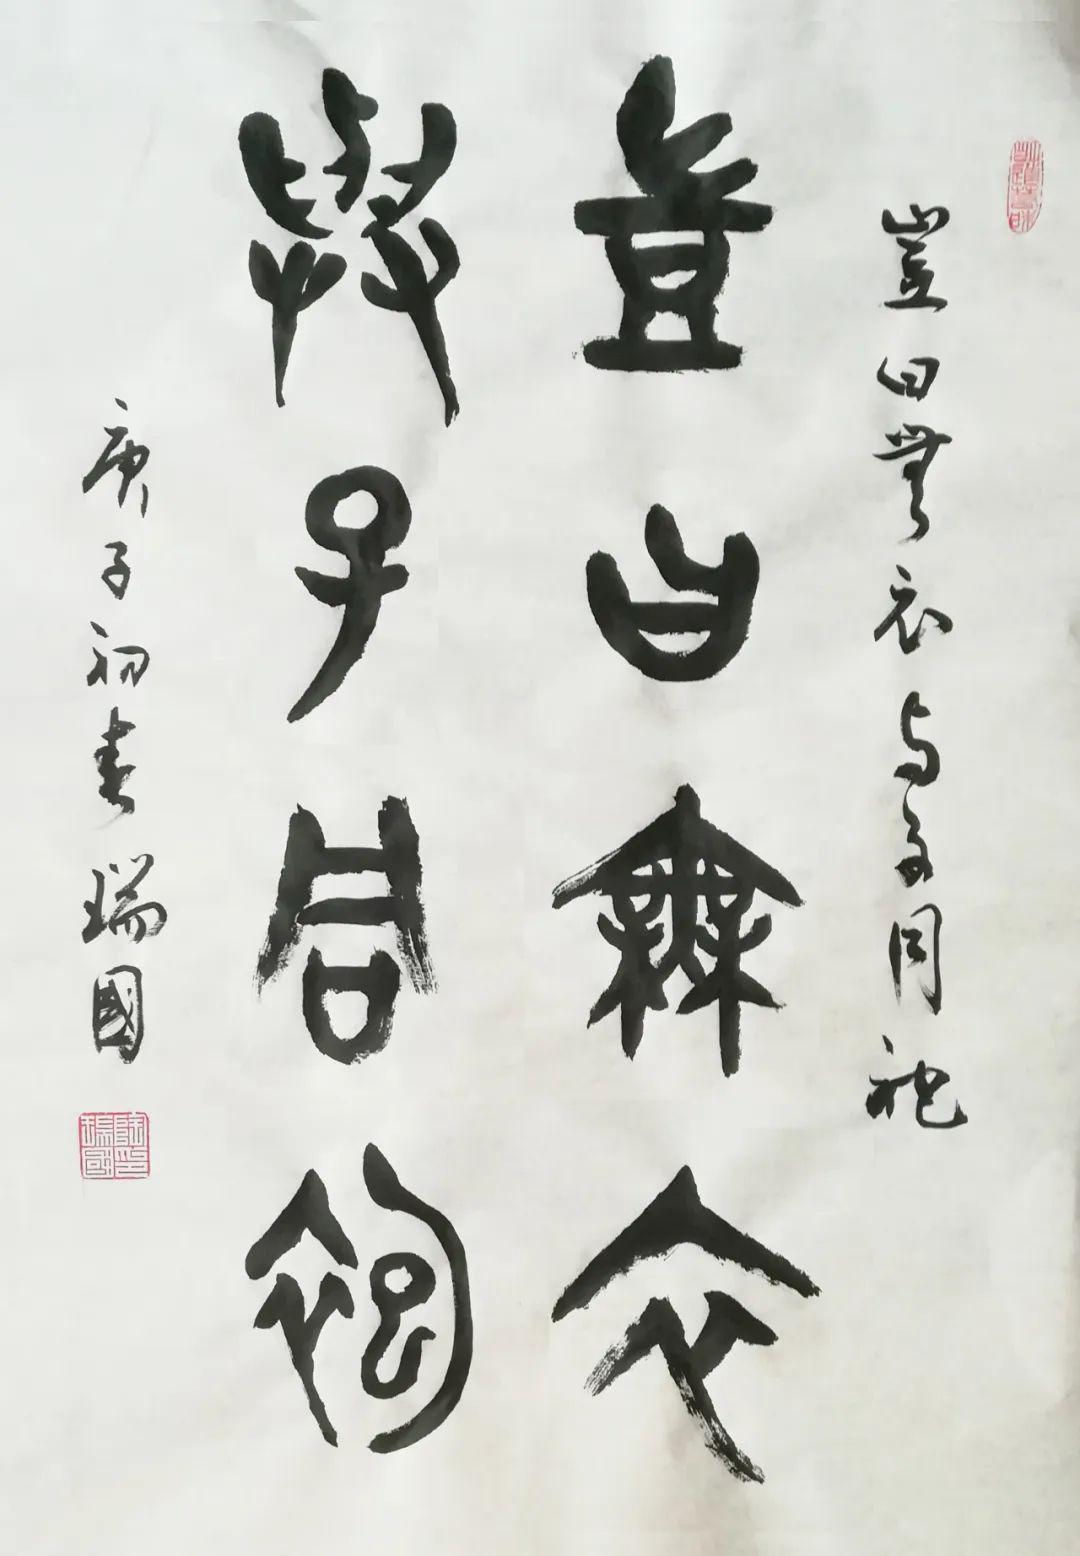 豈曰無衣与子同袍
豈曰無衣
與子同袍
庚子初春瑞國